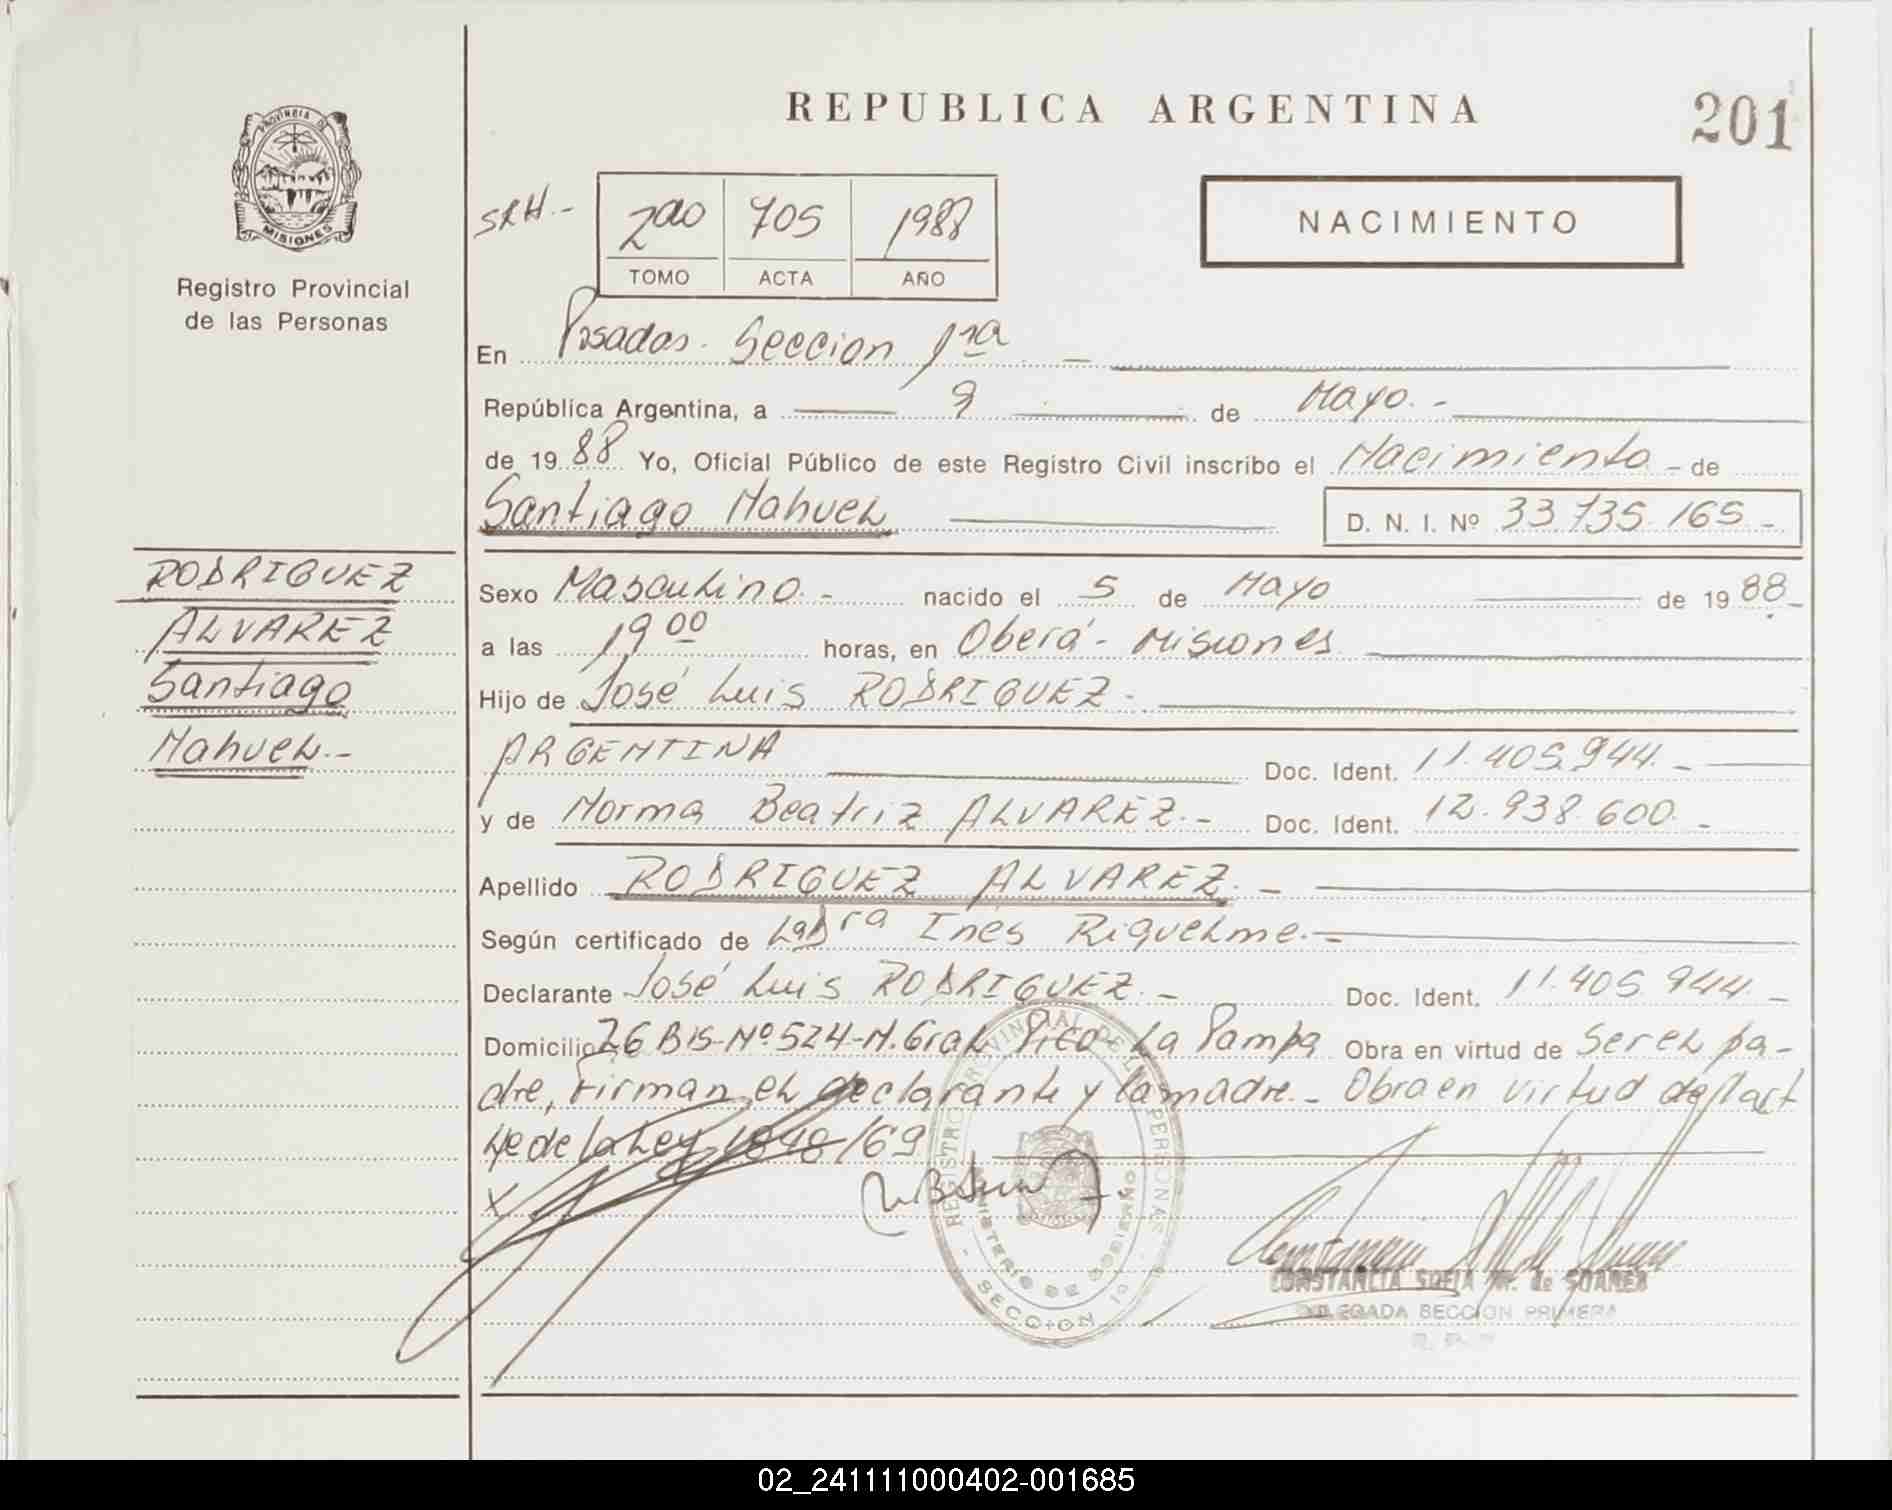 REPUBLICA ARGENTINA
201
PROVINCIA DE
MISIONES
Registro Provincial
de las Personas
SRH.-
2do 705 1988
TOMO ACTA AÑO
NACIMIENTO
En Posadas. Seccion 1ra -
República Argentina, a 9 de Mayo.-
de 1988 Yo, Oficial Público de este Registro Civil inscribo el Nacimiento - de
Santiago Nahuel D. N. I. Nº 33.735.165 -
RODRIGUEZ
ALVAREZ
Santiago
Nahuel.-
Sexo Masculino.- nacido el 5 de Mayo de 1988.-
a las 19 00 horas, en Oberá - Misiones
Hijo de José Luis RODRIGUEZ -
ARGENTINA Doc. Ident. 11.405.944.-
y de Norma Beatriz ALVAREZ.- Doc. Ident. 12.938.600.-
Apellido RODRIGUEZ ALVAREZ.-
Según certificado de la Dra Inés Riquelme.-
Declarante José Luis RODRIGUEZ.- Doc. Ident. 11.405.944.-
Domicilio 26 Bis-Nº 524-N. Gral Pico- La Pampa Obra en virtud de ser el pa-
dre, Firman el declarante y la madre.- Obra en virtud del art
4º de la Ley 1848/69
X
REGISTRO PROVINCIAL DE LAS PERSONAS
MINISTERIO DE GOBIERNO
SECCION 1a
CONSTANCIA SOFIA M. de SUAREZ
DELEGADA SECCION PRIMERA
02_241111000402-001685